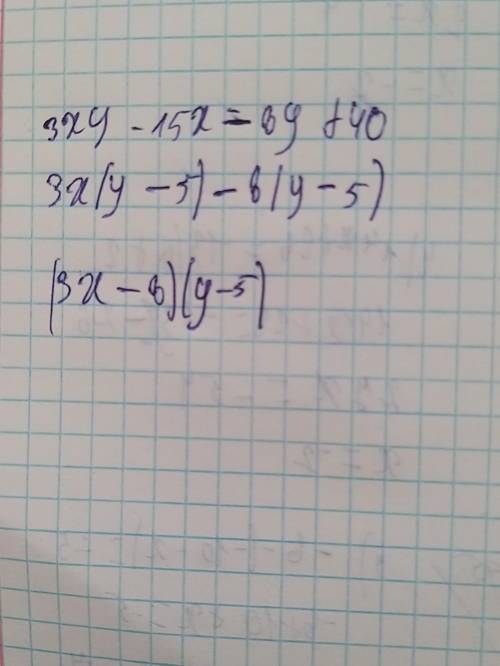 3xy - 15x - 8y + 40
3x(y - 5) - 8(y - 5)
(3x - 8)(y - 5)